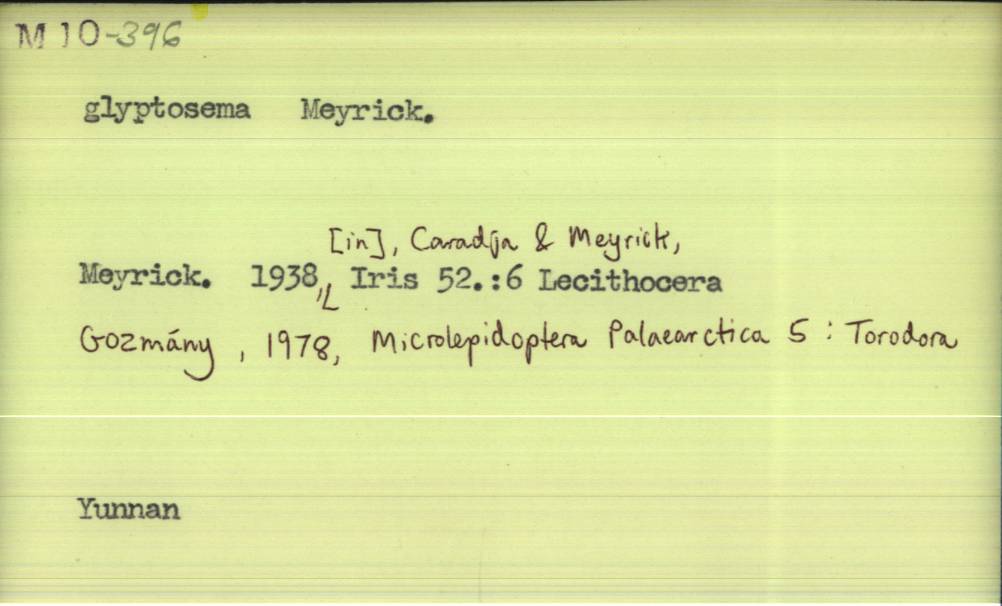 M 10-396
glyptosema Meyrick.
[in], Caradja & Meyrick,
Meyrick. 1938, Iris 52.:6 Lecithocera
Gozmány, 1978, Microlepidoptera Palaearctica 5 : Torodora
Yunnan